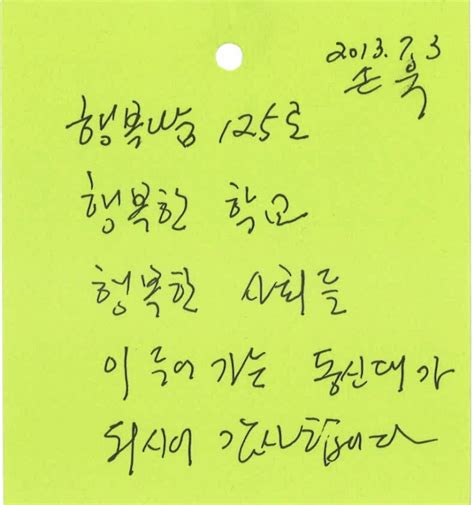 2013.7.3
손욱
행복나눔 125로
행복한 학교
행복한 사회를
이루어 가는 동신대가
되시어 감사합니다